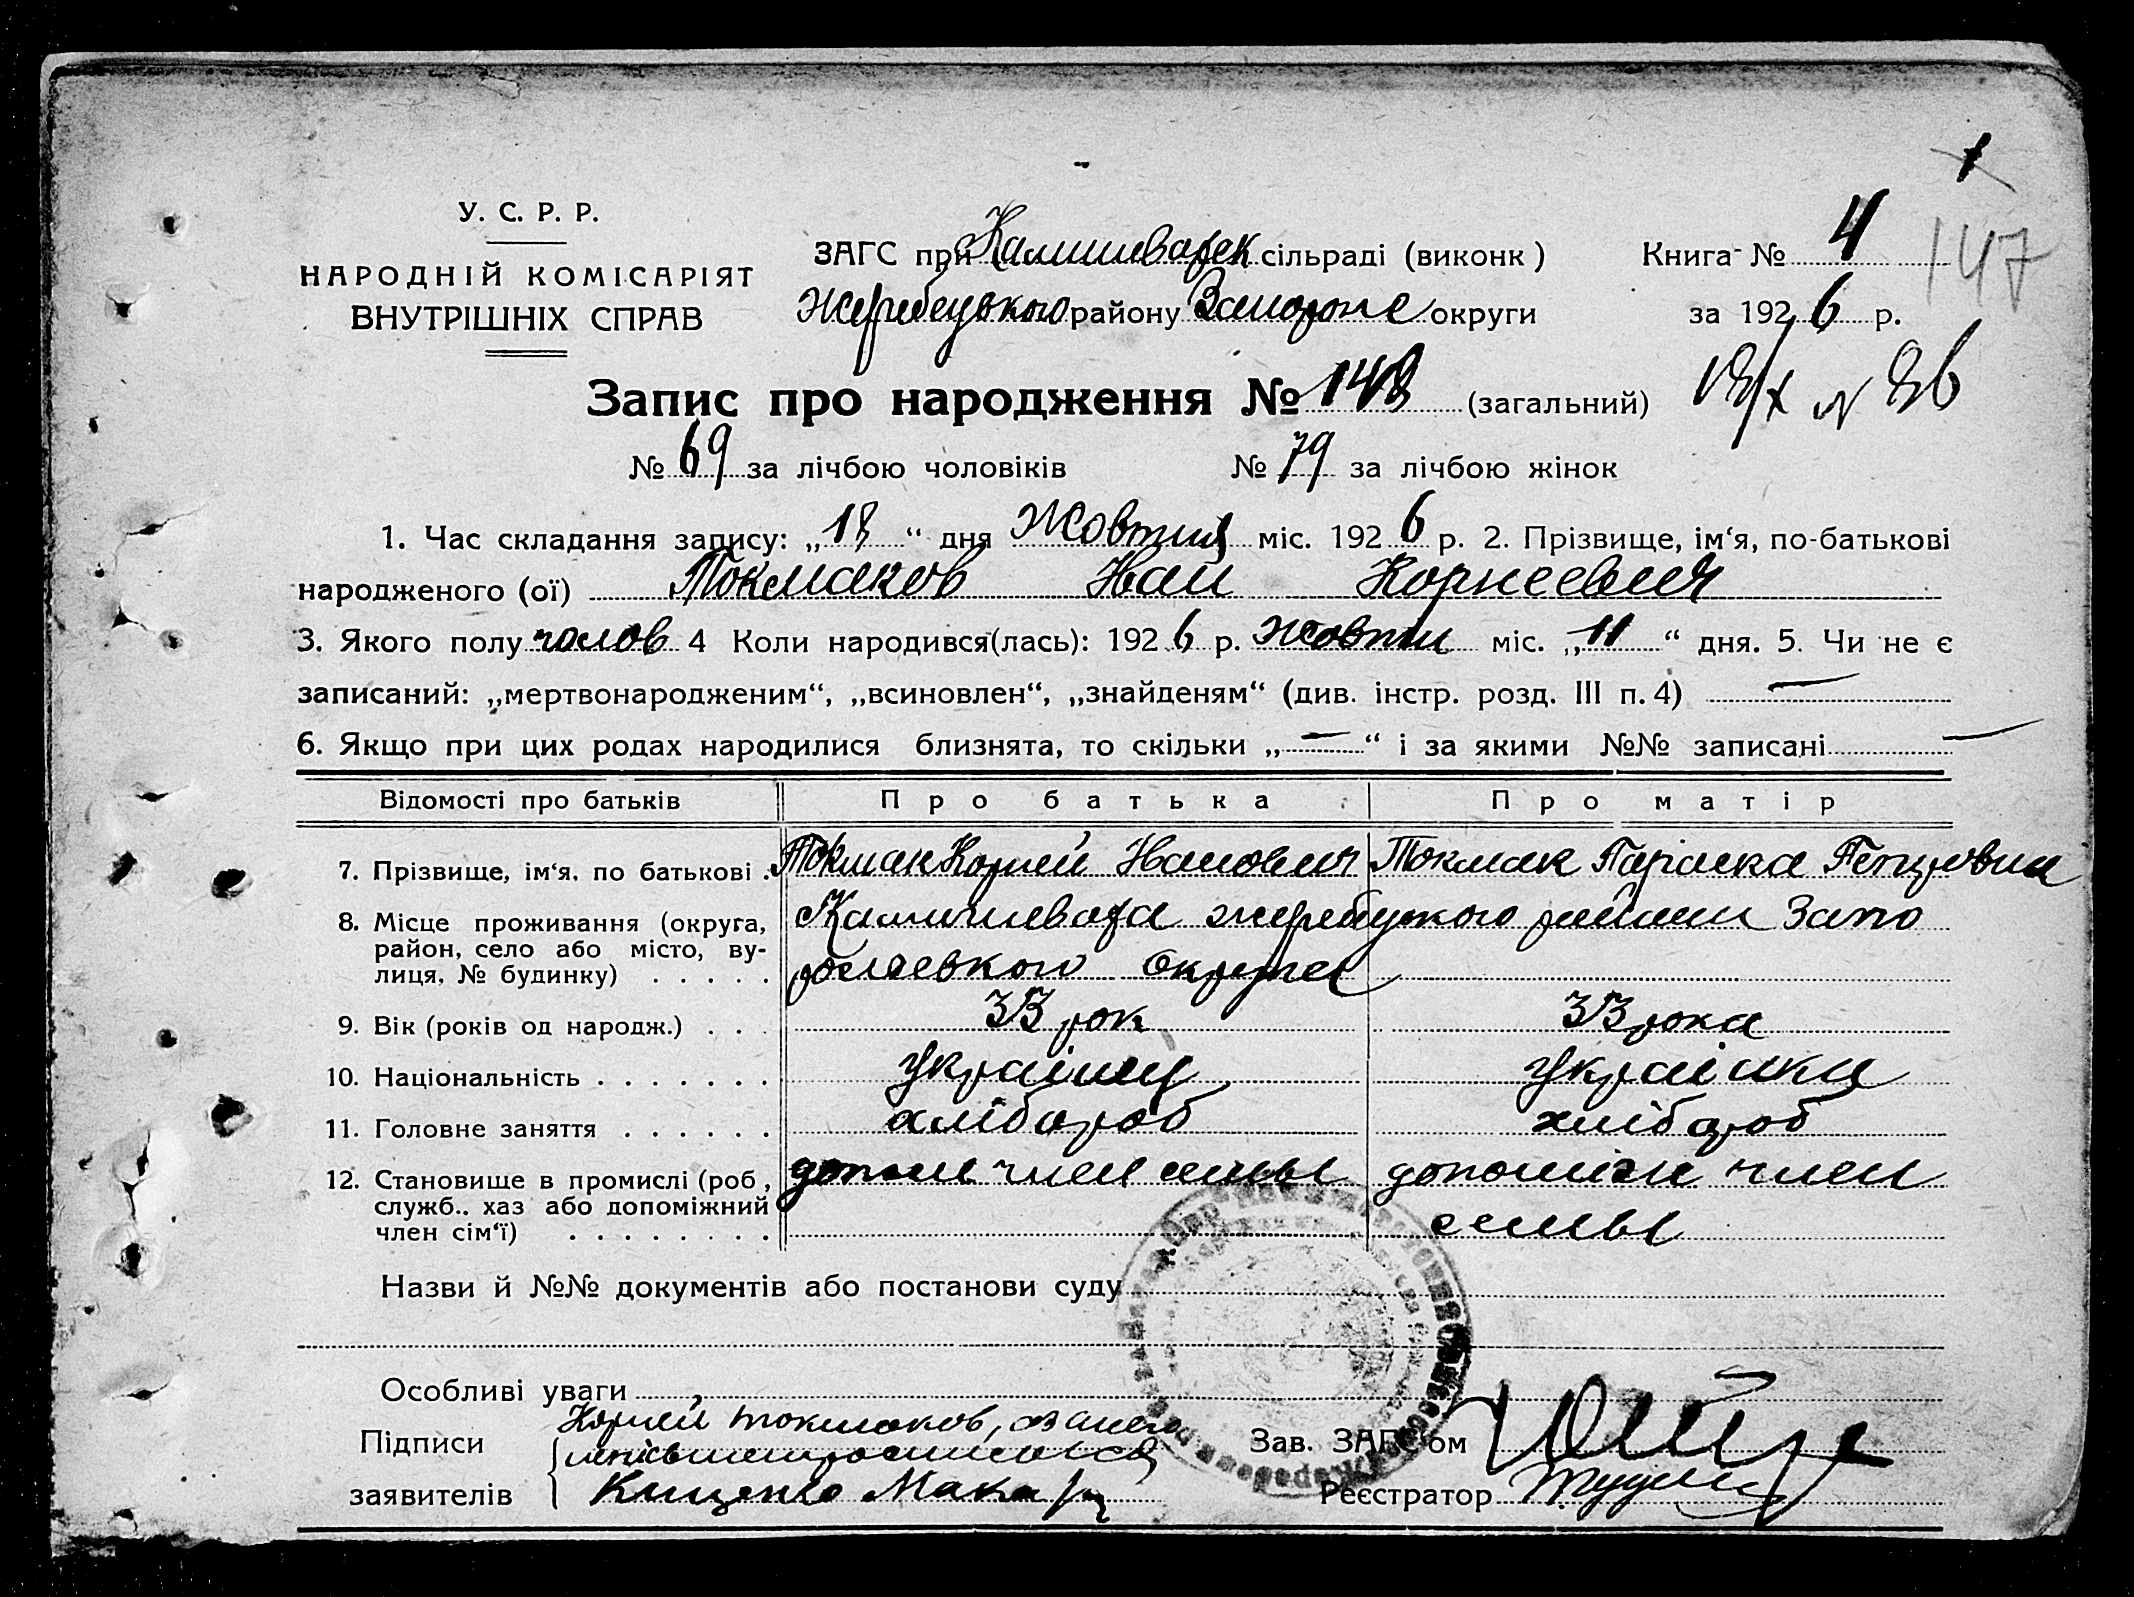 1
У. С. Р. Р.
НАРОДНІЙ КОМІСАРІЯТ
ВНУТРІШНІХ СПРАВ
ЗАГС при Камишеварск сільраді (виконк)
Жеребецького району Запорож округи
Книга № 4
147
за 1926 р.
Запис про народження № 148 (загальний)
18/X № 86
№ 69 за лічбою чоловіків № 79 за лічбою жінок
1. Час складання запису: „18“ дня Жовтня міс. 1926 р. 2. Прізвище, ім‘я, по-батькові
народженого (ої) Токмаков Иван Корнеевич
3. Якого полу чолов 4 Коли народився(лась): 1926 р. жовтн міс. „11“ дня. 5. Чи не є
записаний: „мертвонародженим“, „всиновлен“, „знайденям“ (див. інстр. розд. III п. 4) —
6. Якщо при цих родах народилися близнята, то скільки „—“ і за якими №№ записані —
Відомості про батьків Про батька Про матір
7. Прізвище, ім‘я, по батькові . Токмак Корней Иванович Токмак
8. Місце проживання (округа, район, село або місто, ву-лиця, № будинку) . . . . .
Камишеваха жеребцкого района Запо
рожского округа
9. Вік (років од народж.) . . . 33 рок 33 рока
10. Національність . . . . . . . українец українка
11. Головне заняття . . . . . . хлібороб хлібороб
12. Становище в промислі (роб, служб.. хаз або допоміжний член сім‘ї) . . . . . . . .
допом член семьы допоміжн член
семьы
Назви й №№ документів або постанови суду
Особливі уваги
Підписи
заявителів
Корней токмаков, за него
Кищенко Макар
Зав. ЗАГС‘ом
Реєстратор